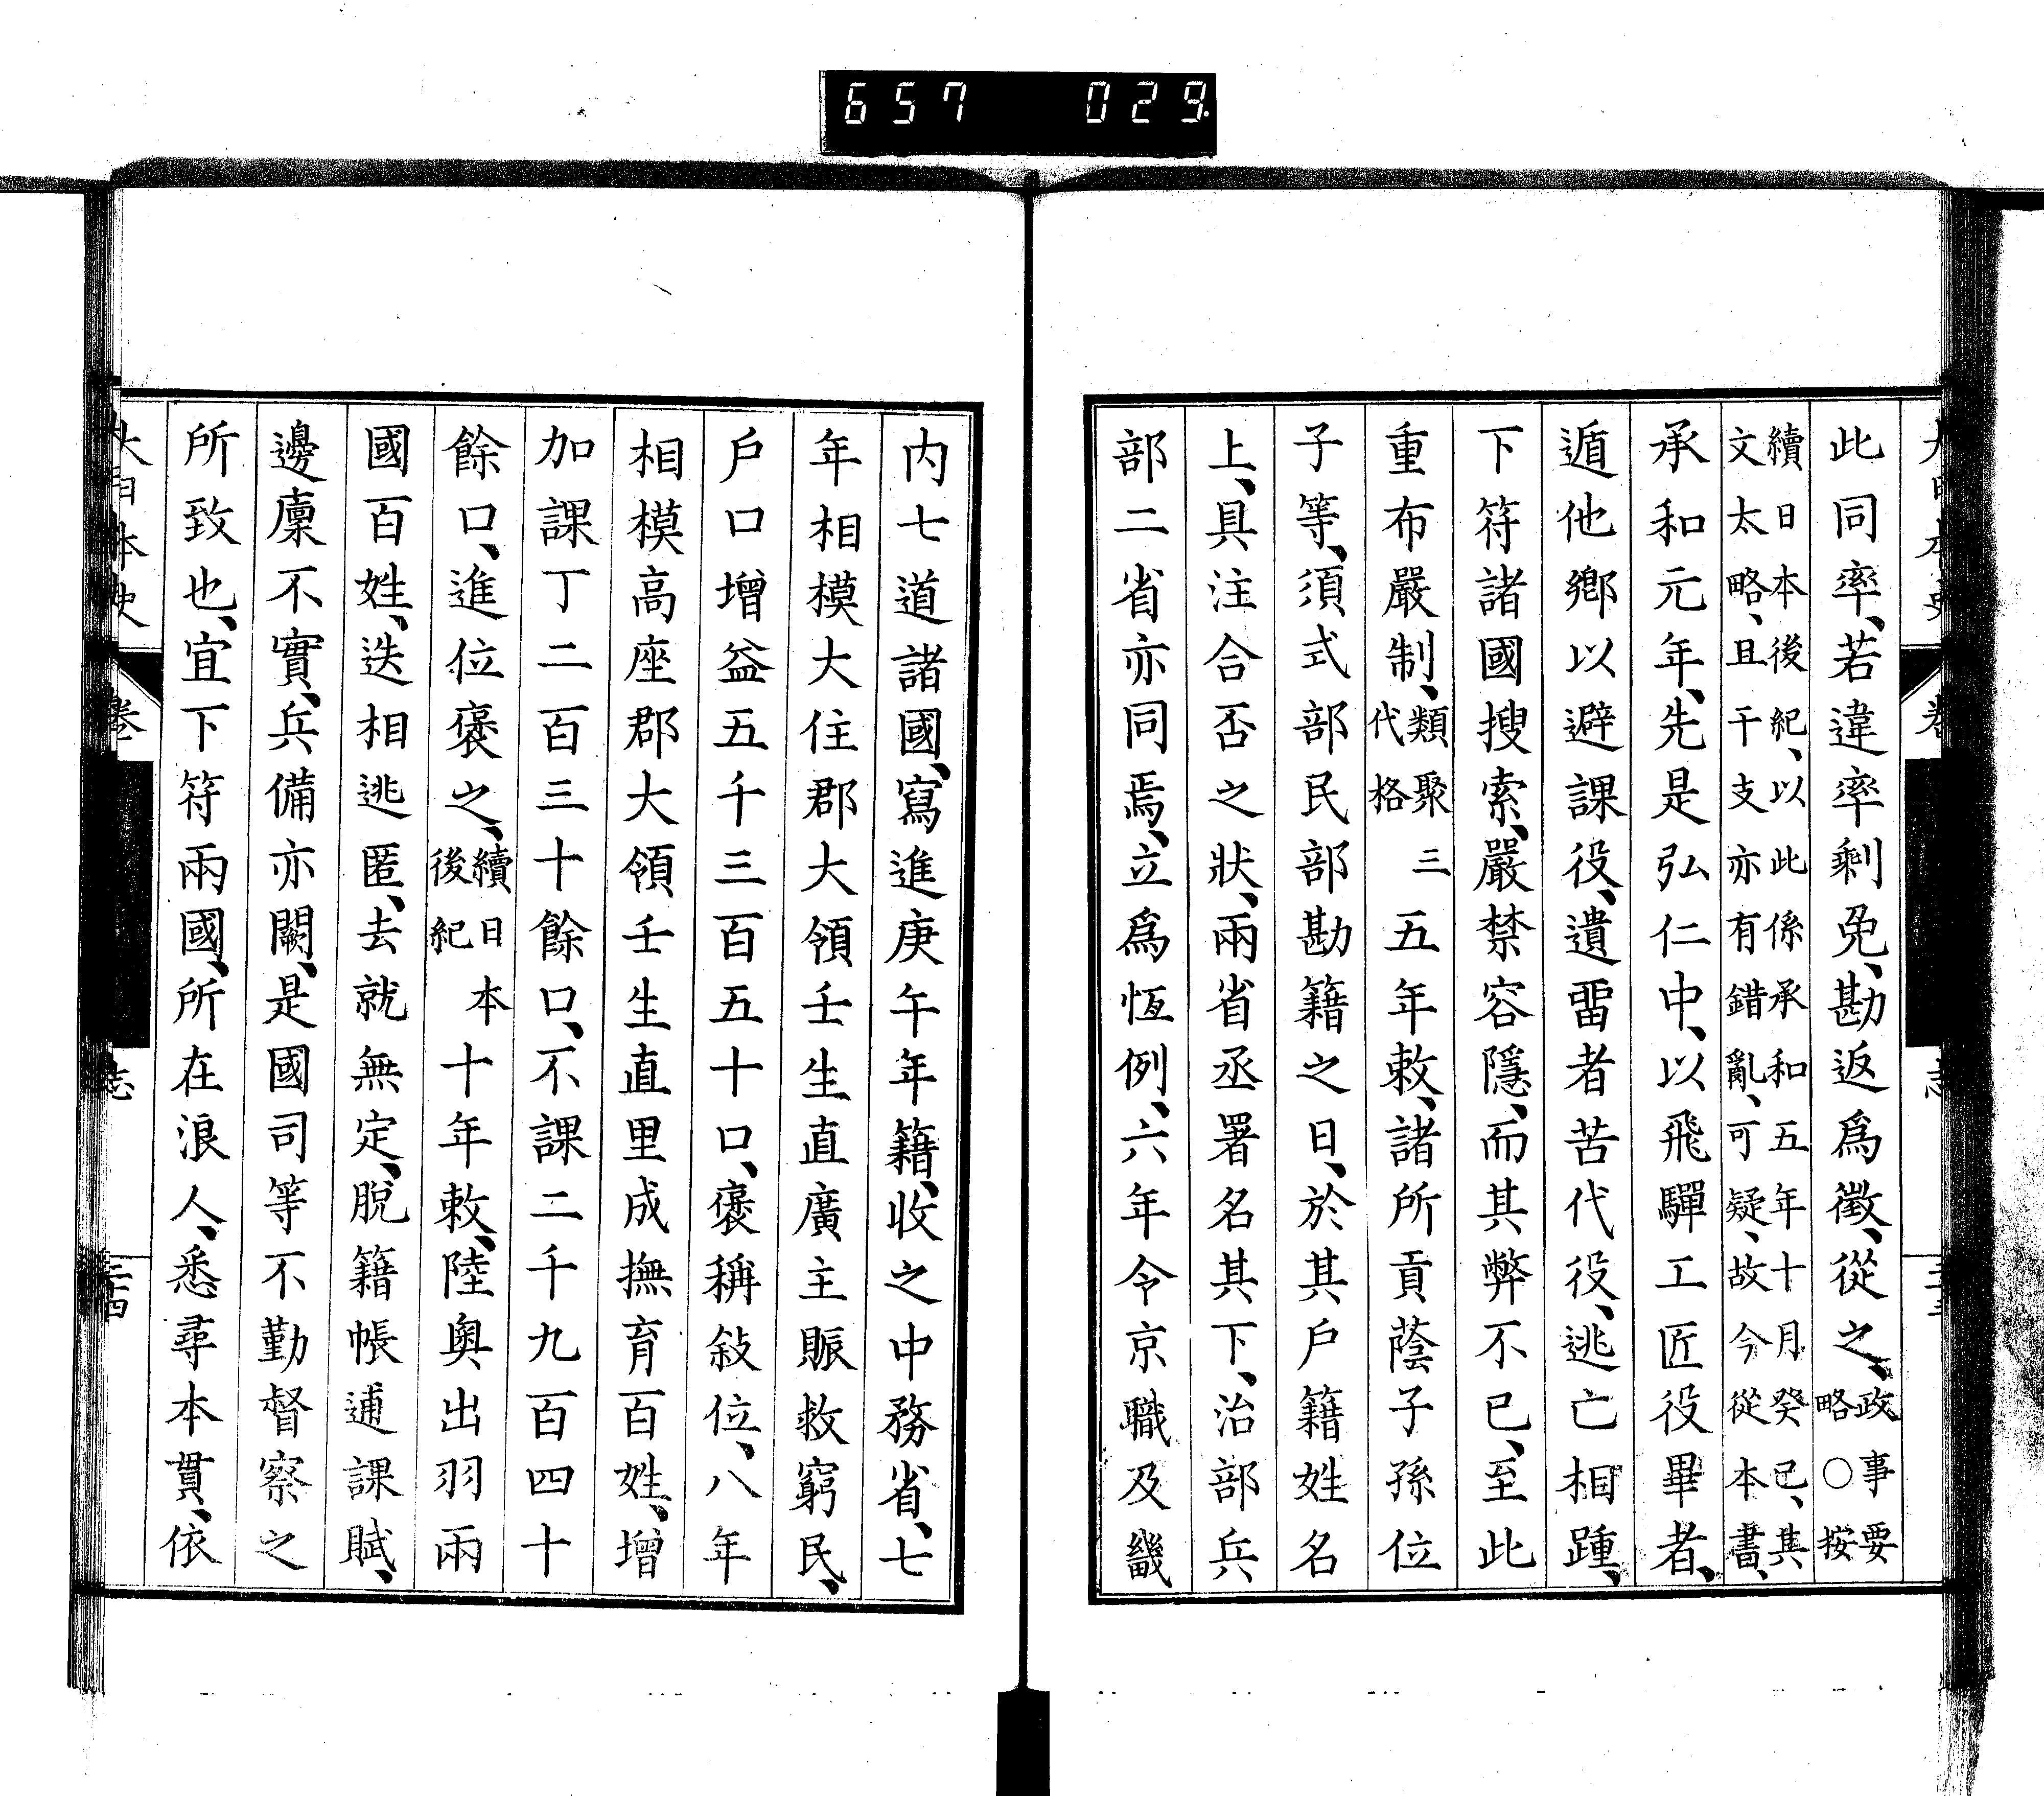 657 029.
大日本史 卷 志 三十三
此同率、若違率剩免、勘返爲徵、從之、政事要略○按
續日本後紀、以此係承和五年十月癸已、其文太略、且干支亦有錯亂、可疑、故今從本書、
承和元年、先是弘仁中、以飛驒工匠役畢者、
遁他鄉以避課役、遺畱者苦代役、逃亡相踵、
下符諸國搜索、嚴禁容隱、而其弊不已、至此
重布嚴制、類聚三代格五年敕、諸所貢蔭子孫位
子等、須式部民部勘籍之日、於其戶籍姓名
上、具注合否之狀、兩省丞署名其下、治部兵
部二省亦同焉、立爲恆例、六年令京職及畿
内七道諸國、寫進庚午年籍、收之中務省、七
年相模大住郡大領壬生直廣主賑救窮民、
戶口增益五千三百五十口、褒稱敍位、八年
相模高座郡大領壬生直里成撫育百姓、增
加課丁二百三十餘口、不課二千九百四十
餘口、進位褒之、續日本後紀十年敕、陸奧出羽兩
國百姓、迭相逃匿、去就無定、脫籍帳逋課賦、
邊廩不實、兵備亦闕、是國司等不勤督察之
所致也、宜下符兩國、所在浪人、悉尋本貫、依
大日本史 卷 志 三十四